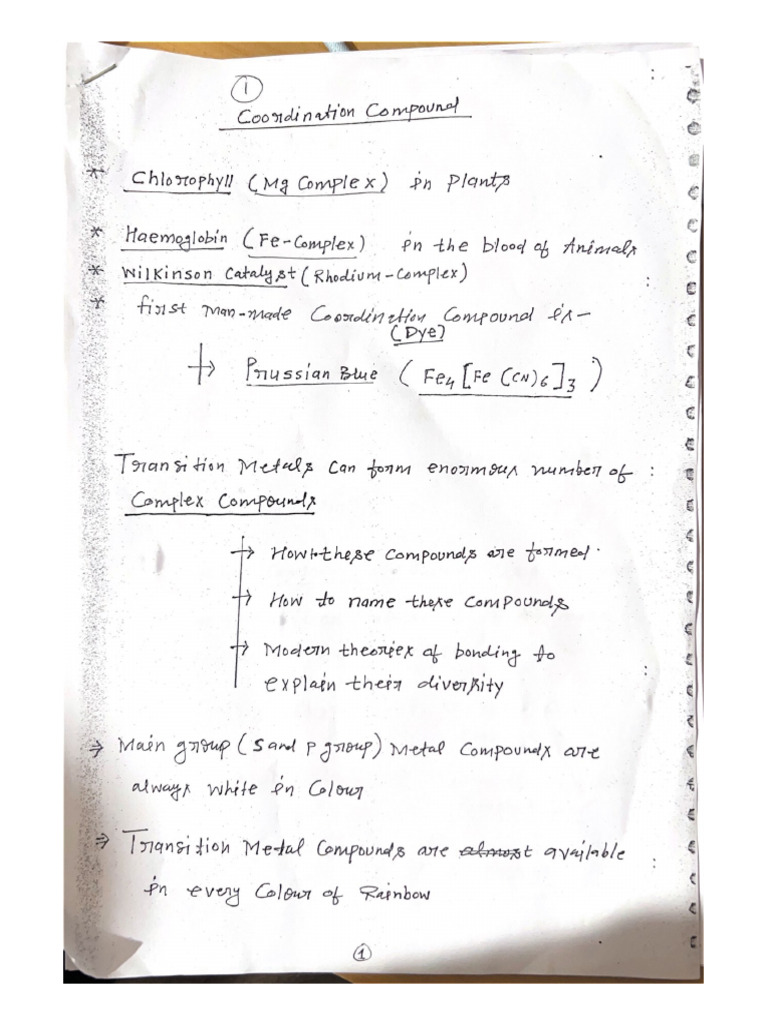 ①
Coordination Compound
* Chlorophyll (Mg Complex) in Plants
* Haemoglobin (Fe-Complex) in the blood of Animals
* Wilkinson Catalyst (Rhodium-Complex)
* first Man-made Coordination Compound is-
(Dye)
→ Prussian Blue (Fe4[Fe(CN)6]3)
Transition Metals Can form enormous number of :
Complex Compounds
→ How these Compounds are formed.
→ How to name these Compounds
→ Modern theories of bonding to
explain their diversity
⇒ Main group (S and P group) Metal Compounds are
always white in Colour
⇒ Transition Metal Compounds are almost available
in every Colour of Rainbow
①